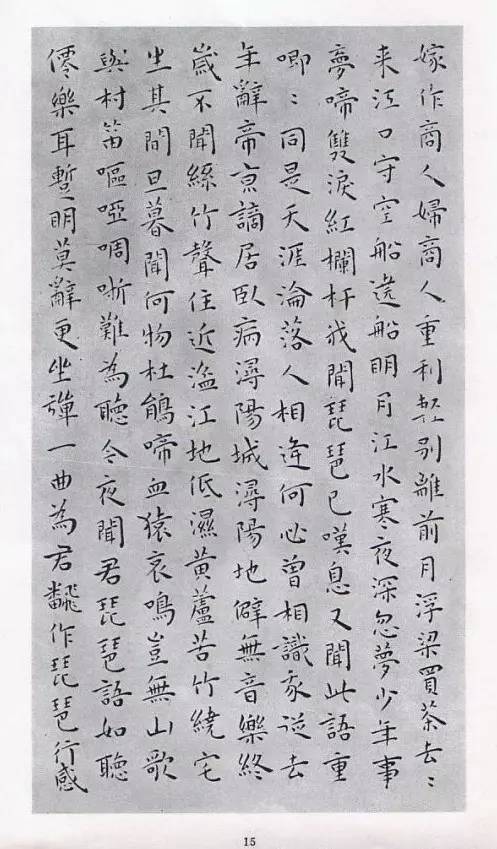 嫁作商人婦商人重利輕別離前月浮梁買茶去〻
来江口守空船遶船明月江水寒夜深忽夢少年事
夢啼雙淚紅欄杆我聞琵琶已嘆息又聞此語重
唧〻同是天涯淪落人相逢何必曾相識我從去
年辭帝京謫居臥病潯陽城潯陽地僻無音樂終
歲不聞絲竹聲住近湓江地低濕黃蘆苦竹繞宅
生其間旦暮聞何物杜鵑啼血猿哀鳴豈無山歌
與村笛嘔啞啁哳難為聽今夜聞君琵琶語如聽
僊樂耳暫明莫辭更坐彈一曲為君飜作琵琶行感
15